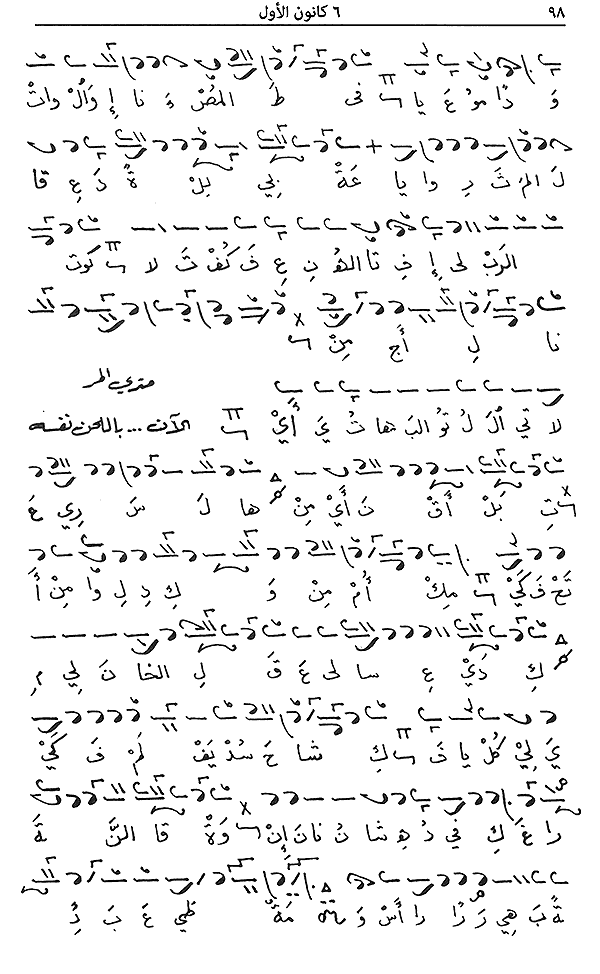 ٩٨ ٦ كانون الأول
وَ ذا مو عَ يا في طَ المَصْ ءَ نا إِ وَالْ واتْ
لَ المُ شَ دِ وا يا عَةْ بِي بِلْ ةُ دَ عِ قا
الرَبْ لي إِ فِ تا الهُ نِ عِ فَ كُفْ تَ لا كوت
نا لِ أَجْ مِنْ
متري المر
لا تي الَ لُ تو البَ ها تُ يَ أَيْ الآن ... باللحن نفسه
تِ بَلْ أَقْ نَ أَيْ مِنْ ها لَ سَ رِي عَ
تَحْ فَ كَيْ مِكْ أُمْ مِن وَ كِ دِ لِ وا مِنْ أَ
كِ دَيْ عِ سا لى عَ قَ لِ الخا نَ لِي مِ
يَ لِيْ كُلْ يا فَ كِ شا حَ سُدْ يَفْ لَمْ فَ كَيْ
را عَ كِ في دُ هِـ شا نُ نا نَ إِنْ وَةْ قا النَّ ةَ
ةً بَ هي رَ را أَسْ وَ مَةً ظي عَ بَ